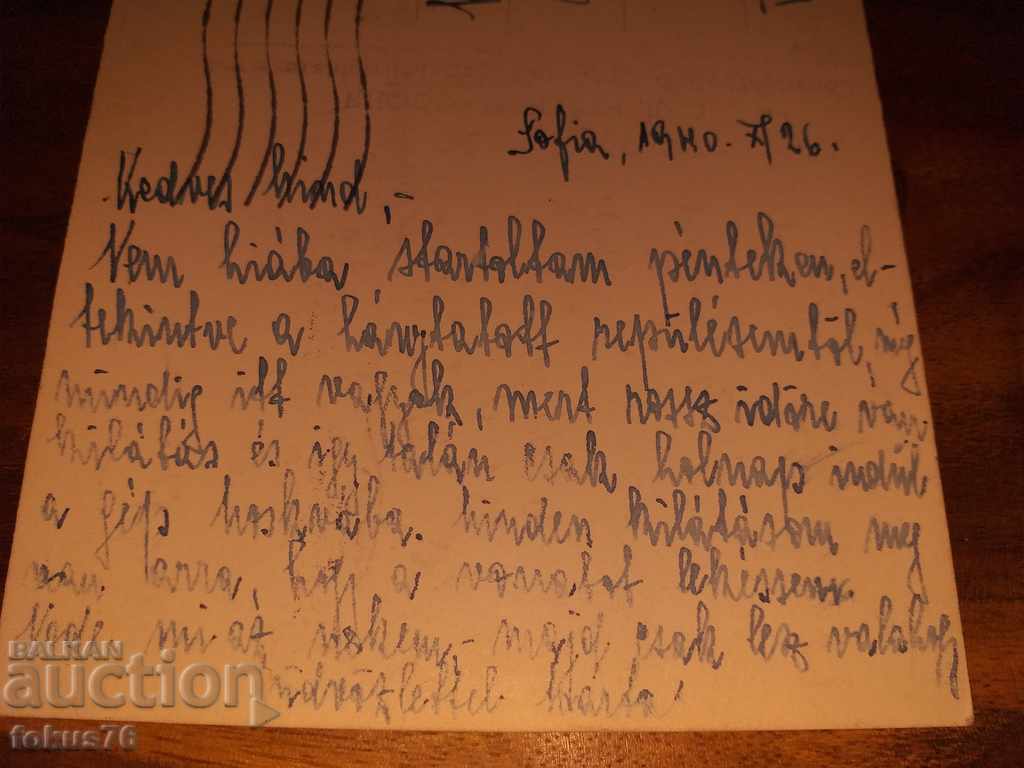 Sofia, 1940. X/26.
Kedves Mind,-
Nem hiába startoltam pénteken, el-
tekintve a hánytatott repülésemtől, még
mindig itt vagyok, mert rossz időre van
kilátás és így talán csak holnap indul
a gép Moszkvába. Minden kilátásom meg
van arra, hogy a vonatot lekéssem.
Node mi az nekem,- majd csak lesz valahogy
Üdvözlettel Márta
BALKAN
auction
fokus76